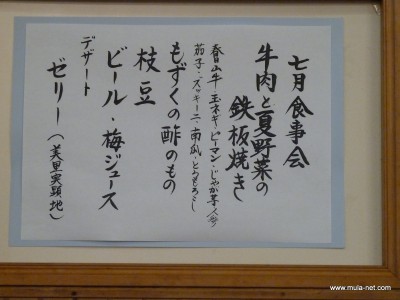 七月食事会
牛肉と夏野菜の
鉄板焼き
春日山牛・玉ネギ・ピーマン・じゃが芋・人参
茄子・ズッキーニ・南瓜・とうもろこし
もずくの酢のもの
枝豆
ビール・梅ジュース
デザート
ゼリー(美里実顕地)
www.mula-net.com